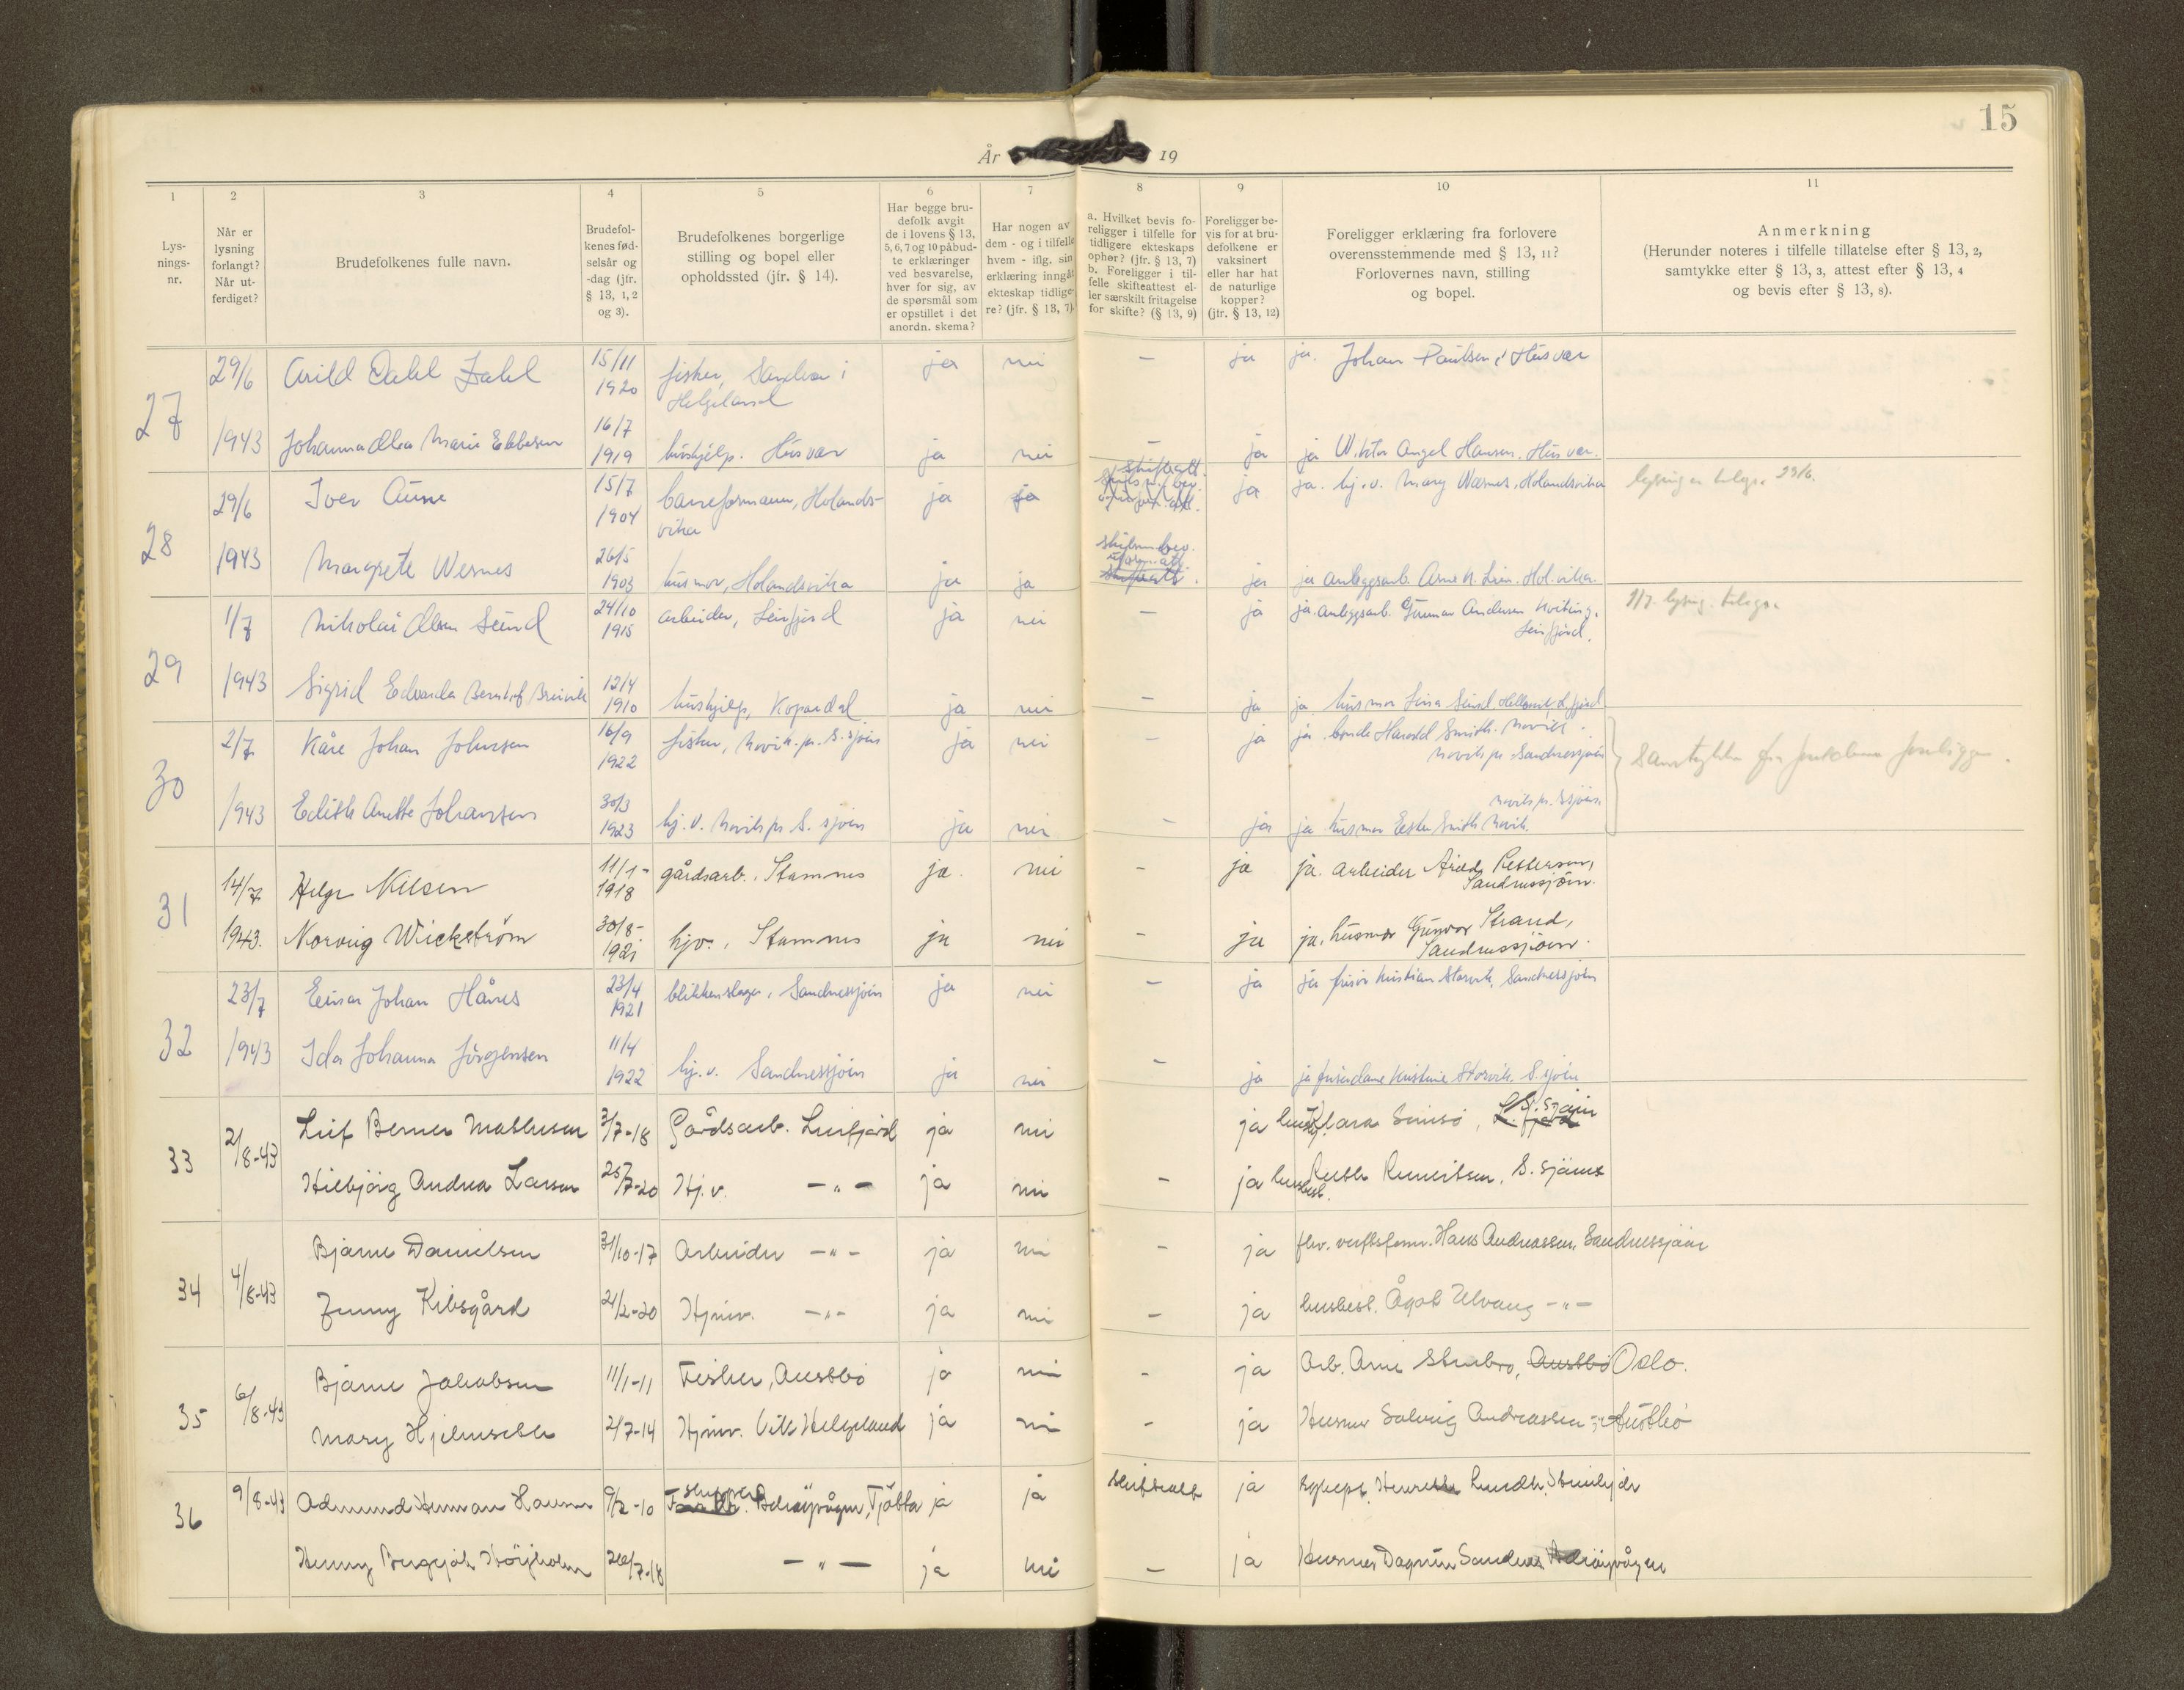 15
År 19
1 2 3 4 5 6 7 8 9 10 11
Lys-
nings-
nr.
Når er
lysning
forlangt?
Når ut-
ferdiget?
Brudefolkenes fulle navn.
Brudefol-
kenes fød-
selsår og
-dag (jfr.
§ 13, 1, 2
og 3).
Brudefolkenes borgerlige
stilling og bopel eller
opholdssted (jfr. § 14).
Har begge bru-
defolk avgit
de i lovens § 13,
5, 6, 7 og 10 påbud-
te erklæringer
ved besvarelse,
hver for sig, av
de spørsmål som
er opstillet i det
anordn. skema?
Har nogen av
dem - og i tilfelle
hvem - iflg. sin
erklæring inngåt
ekteskap tidlige-
re? (jfr. § 13, 7)
a. Hvilket bevis fo-
religger i tilfelle for
tidligere ekteskaps
ophør? (jfr. § 13, 7)
b. Foreligger i til-
felle skifteattest el-
ler særskilt fritagelse
for skifte? (§ 13, 9)
Foreligger be-
vis for at bru-
defolkene er
vaksinert
eller har hat
de naturlige
kopper?
(jfr. § 13, 12)
Foreligger erklæring fra forlovere
overensstemmende med § 13, 11?
Forlovernes navn, stilling
og bopel.
Anmerkning
(Herunder noteres i tilfelle tillatelse efter § 13, 2,
samtykke efter § 13, 3, attest efter § 13, 4
og bevis efter § 13, 8).
27 29/6 Arild Dahl Zahl 15/11 1920 fisker, Sandvær i Helgeland ja nei - ja ja. Johan Paulsen, Husvær
1943 Johanna Olea Marie Ebbesen 16/7 1919 hushjelp. Husvær ja nei - ja ja Wiktor Angel Hansen. Husvær.
28 29/6 Iver Aune 15/7 1904 baneformann, Holands-
vika ja ja skifteatt. ja ja. hj.v. Mary Wesnes, Holandsvika lysning 29/6.
1943 Margrete Wesnes 26/5 1903 husmor, Holandsvika ja ja skifteatt. ja ja anleggsarb. Arne N. Hol.vika
29 1/7 Nikolai Olsen Seind 24/10 1915 arbeider, Leirfjord ja nei - ja ja. anleggsarb. Gunnar Andersen
Leirfjord. 1/7. lysning
1943 Sigrid Edvarda Berntof Breivik 12/4 1910 hushjelp, Kopardal ja nei - ja ja husmor
30 2/7 Kåre Johan Johnsen 16/9 1922 fisker, Novik. pr. S.sjøen ja nei - ja ja. bonde Harald Smith. Novik
Novik pr Sandnessjøen Samtykke fra foreldrene foreligger.
1943 Edith Anette Johansen 30/3 1923 hj.v. Novik pr S. sjøen ja nei - ja ja husmor Ester Smith Novik.
Novik pr. S.sjøen.
31 14/7 Helge Nilsen 11/1- 1918 gårdsarb., Stamnes ja nei - ja ja. arbeider Arild Pettersen,
Sandnessjøen.
1943. Norveig Wickström 30/8- 1921 hjv., Stamnes ja nei - ja ja, husmor Gunvor Strand,
Sandnessjøen.
32 23/7 Einar Johan Hånes 23/4 1921 blikkenslager, Sandnessjøen ja nei - ja ja frisør Kristian Storvik, Sandnessjøen
1943 Ida Johanna Jörgensen 11/4 1922 hj.v. Sandnessjøen ja nei - ja ja frisørdame Kristine Storvik. S.sjøen
33 2/8-43 Leif Berner Mathisen 3/7-18 Gårdsarb. Leirfjord ja nei ja Klara S.sjøen
Hildbjørg Andrea Larsen 25/7-20 Hj.v. -"- ja nei - ja Ruth S. sjøen
34 4/8-43 Bjarne Danielsen 31/10-17 Arbeider -"- ja nei - ja Hans Andreassen, Sandnessjøen
Jenny Kibsgård 21/2-20 Hjmv. -"- ja nei - ja husbest. Ågot Ulvang -"-
35 6/8-43 Bjarne Jakobsen 11/1-11 Fisker, Austbø ja nei - ja Arb. Arne Stenbro, Austbø Oslo.
Mary Hjelmseth 2/7-14 Hjmv. Vik Helgeland ja nei - ja Husmor Solveig Andreassen -"- Austbø
36 9/8-43 Admund Herman Hansen 9/2-10 skipper Tjøtta ja ja skifteatt ja Lundh,
Henny Bergljot 26/7-18 -"- ja nei - ja Husmor Dagrun Sandnes